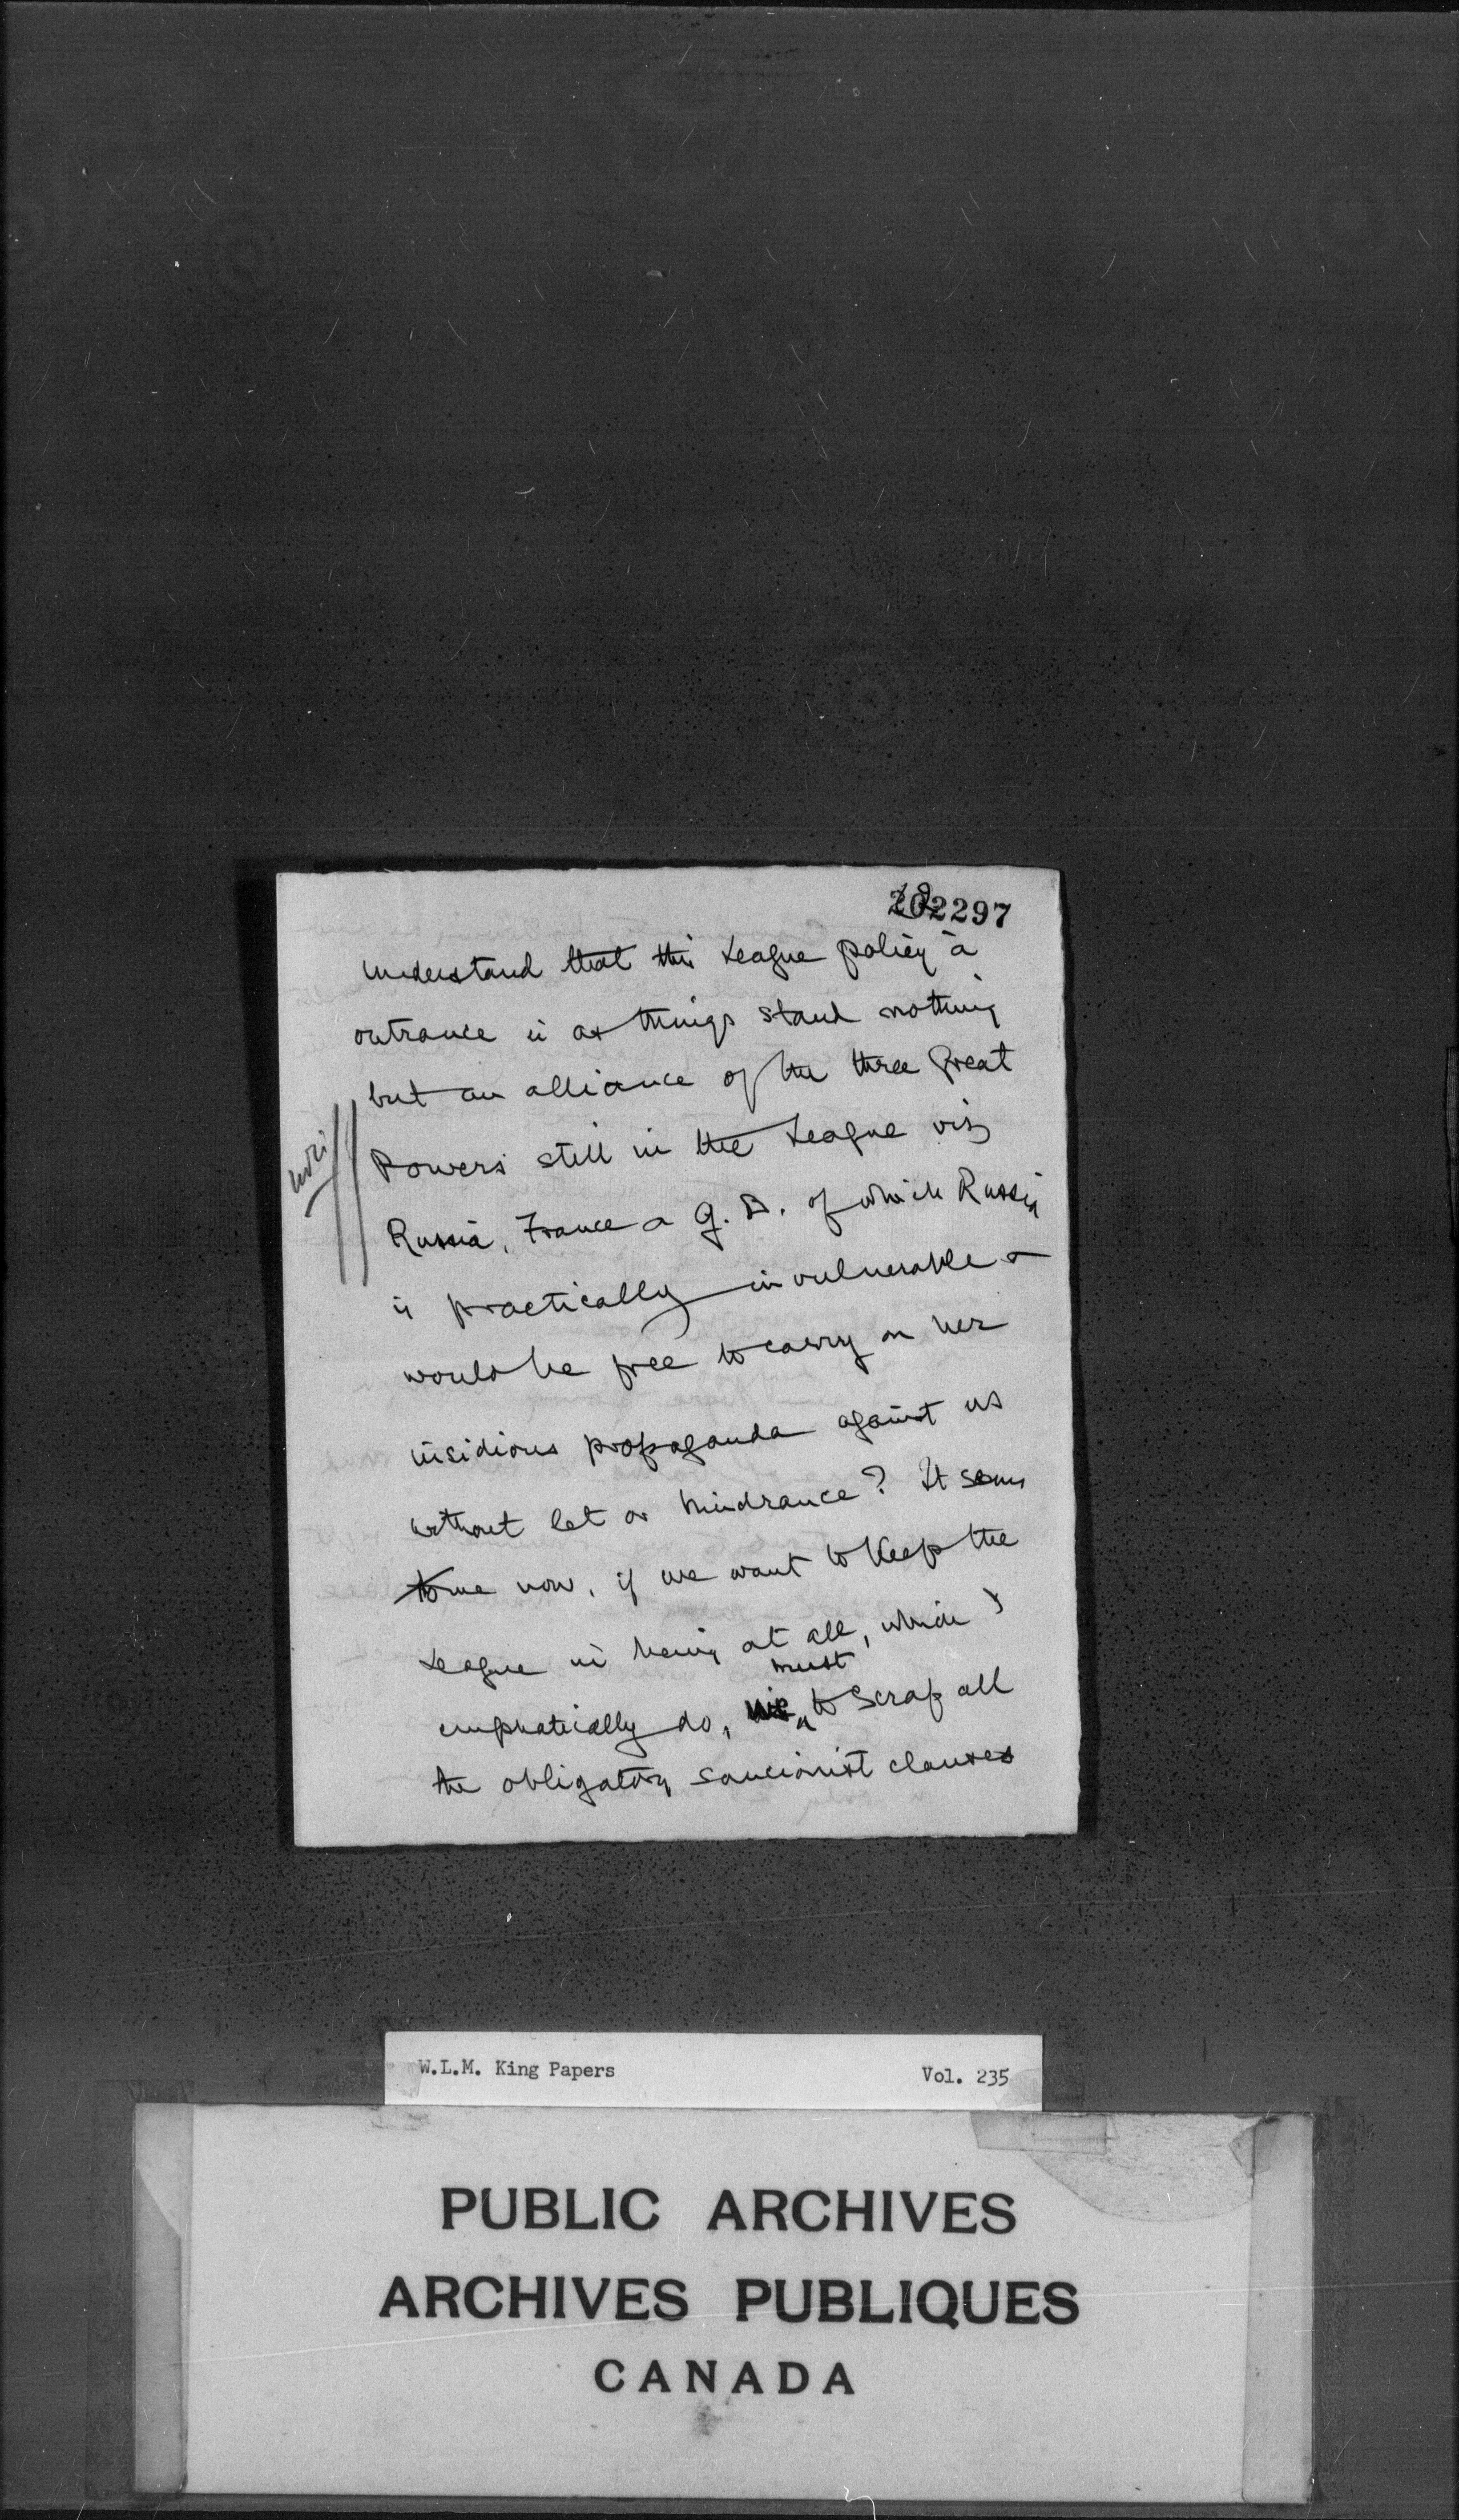 202297
understand that this League policy à
outrance is as things stand nothing
but an alliance of the three Great
Powers still in the League viz
Russia, France & G.B. of which Russia
is practically invulnerable &
would be free to carry on her
insidious propaganda against us
without let or hindrance? It seems
to me now, if we want to keep the
League in being at all, which I
must
emphatically do, we to scrap all
the obligatory sancionist clauses
W.L.M. King Papers Vol. 235
PUBLIC ARCHIVES
ARCHIVES PUBLIQUES
CANADA